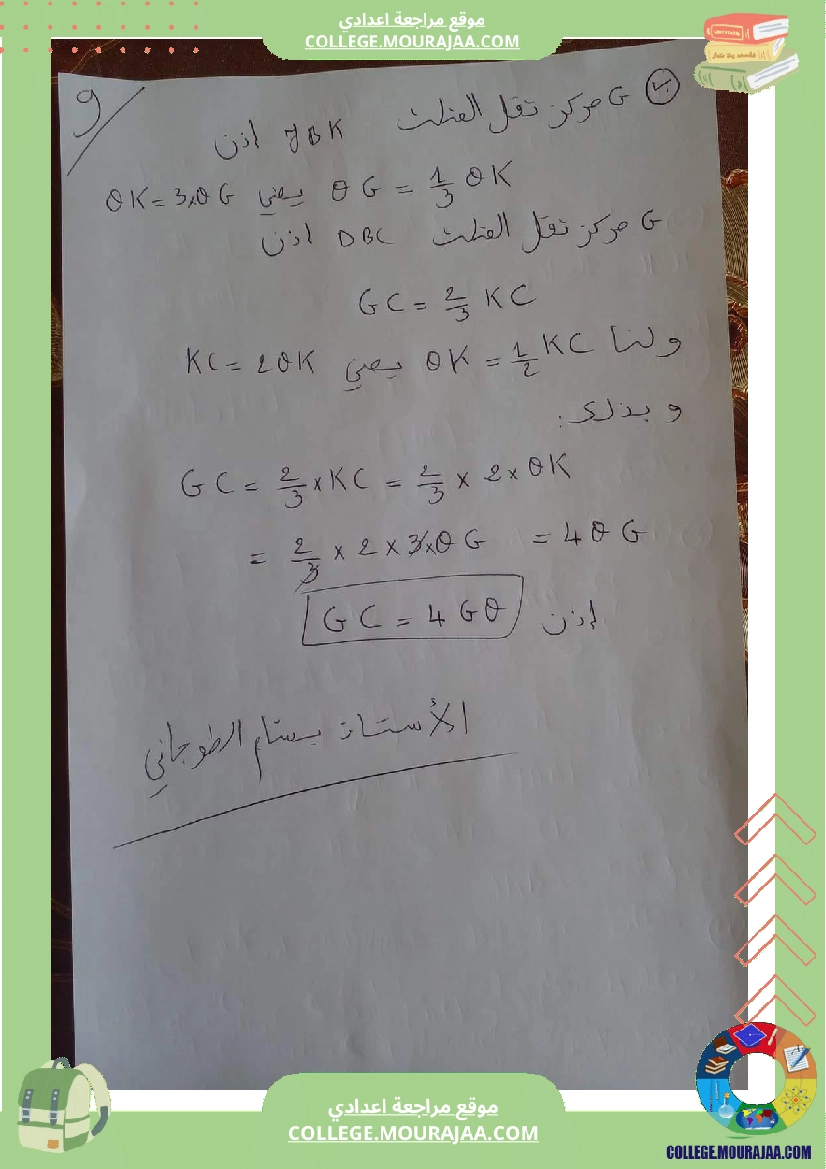 موقع مراجعة اعدادي
COLLEGE.MOURAJAA.COM
9
ب) G مركز ثقل المثلث JBK اذن
OG = 1/3 OK يعني OK = 3×OG
G مركز ثقل المثلث DBC اذن
GC = 2/3 KC
ولنا OK = 1/2 KC يعني KC = 2OK
وبذلك :
GC = 2/3 × KC = 2/3 × 2 × OK
= 2/3 × 2 × 3×OG = 4 OG
إذن GC = 4 GO
الأستاذ بسام الطوجاني
موقع مراجعة اعدادي
COLLEGE.MOURAJAA.COM
COLLEGE.MOURAJAA.COM